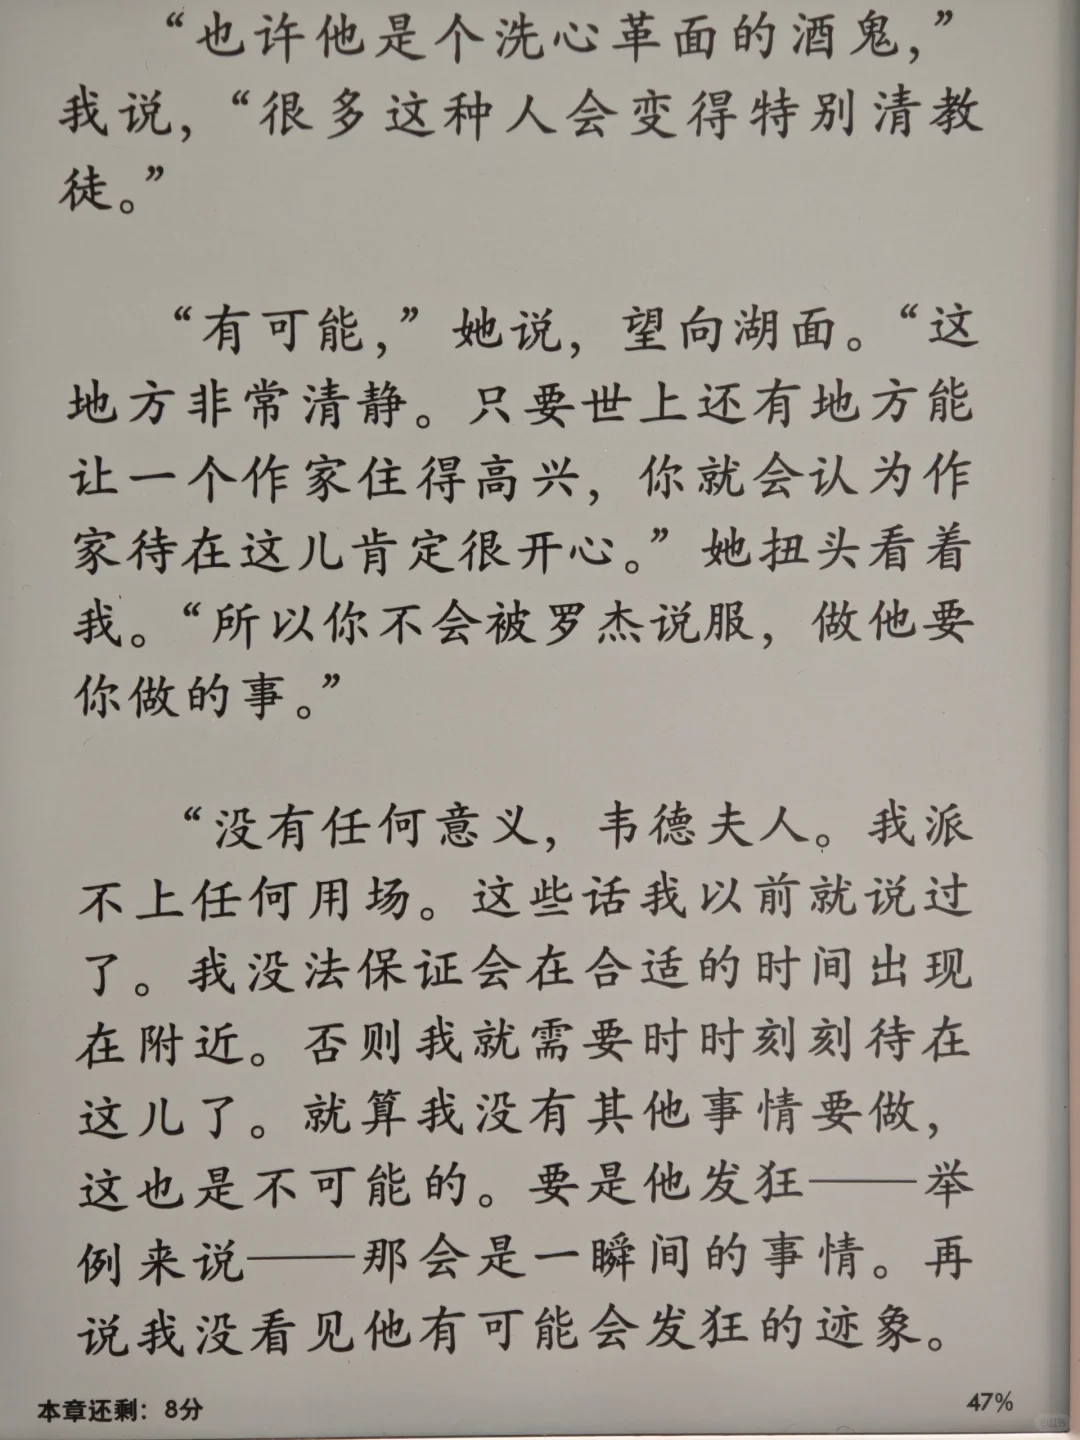 “也许他是个洗心革面的酒鬼，”
我说，“很多这种人会变得特别清教
徒。”
“有可能，”她说，望向湖面。“这
地方非常清静。只要世上还有地方能
让一个作家住得高兴，你就会认为作
家待在这儿肯定很开心。”她扭头看着
我。“所以你不会被罗杰说服，做他要
你做的事。”
“没有任何意义，韦德夫人。我派
不上任何用场。这些话我以前就说过
了。我没法保证会在合适的时间出现
在附近。否则我就需要时时刻刻待在
这儿了。就算我没有其他事情要做，
这也是不可能的。要是他发狂——举
例来说——那会是一瞬间的事情。再
说我没看见他有可能会发狂的迹象。
本章还剩：8分
47%